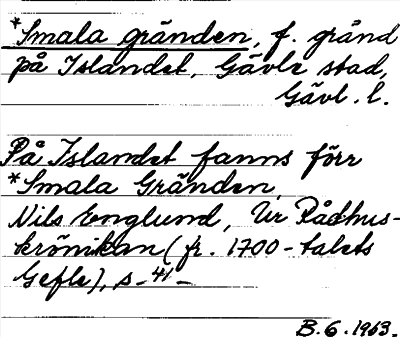 *Smala gränden, f. gränd
på Islandet, Gävle stad,
Gävl. l.
På Islandet fanns förr
*Smala Gränden,
Nils Englund, Ur Rådhus-
krönikan (fr. 1700-talets
Gefle), s. 41
B.6.1963.